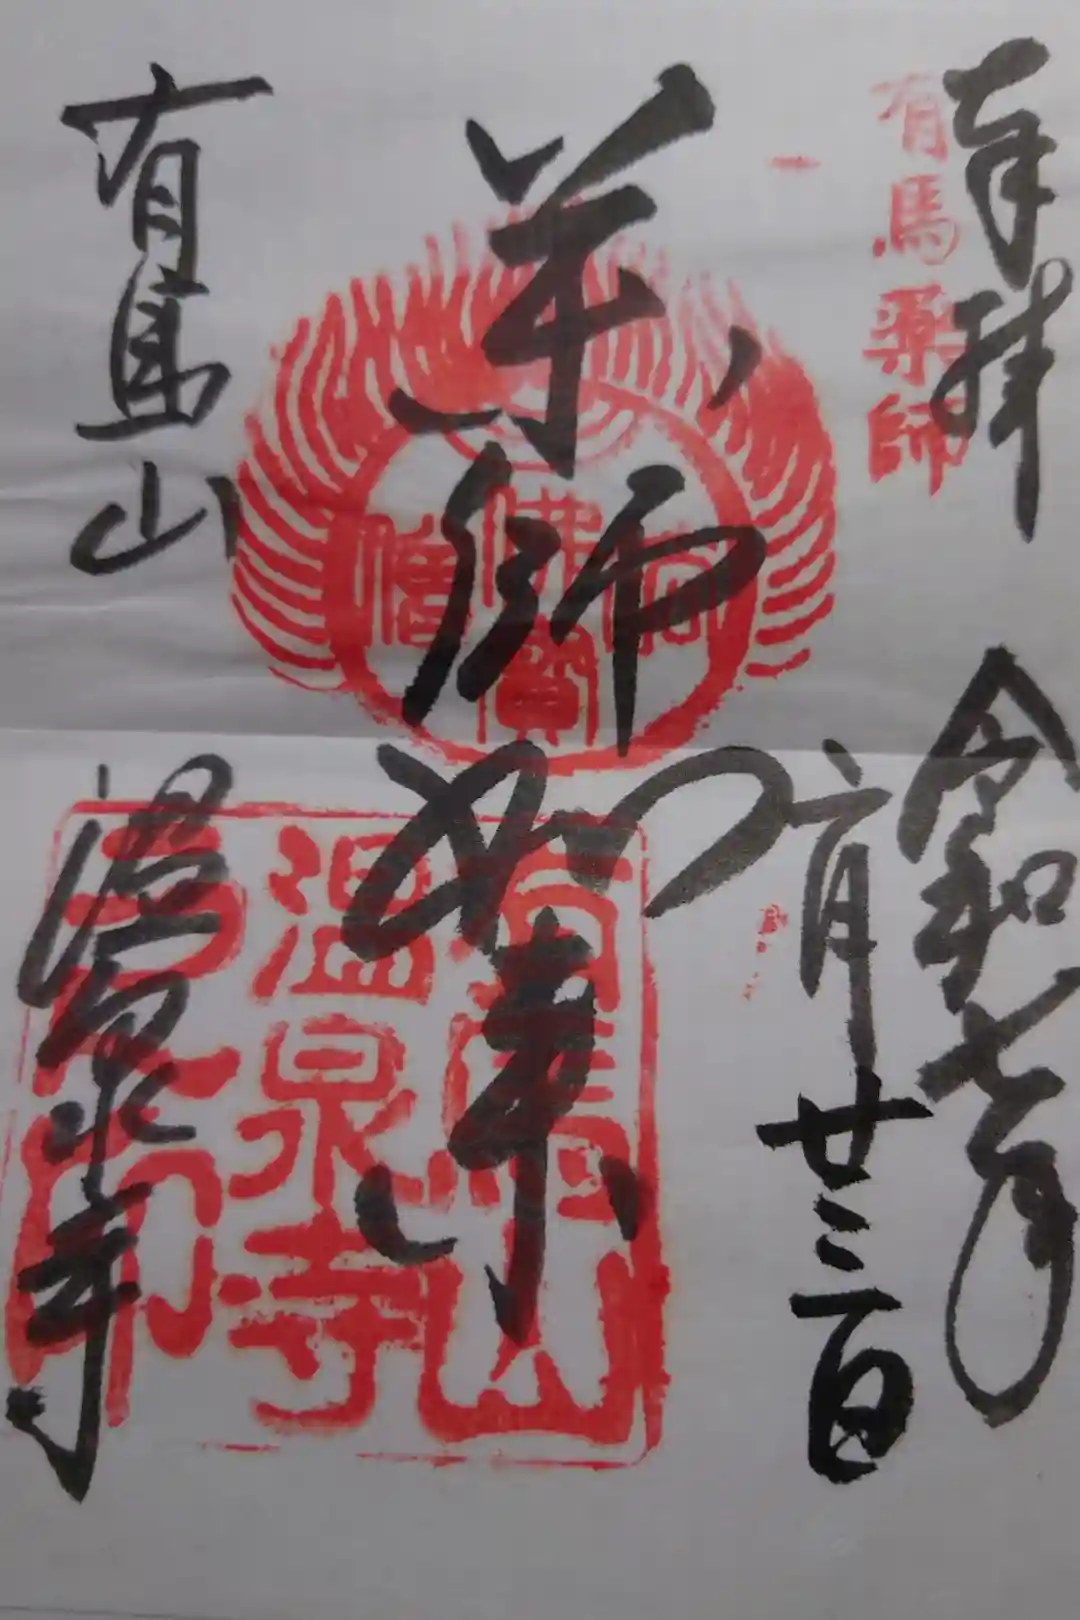 奉拝
令和七年
六月廿三日
有馬薬師
薬師如来
佛法僧寶
有馬山
温泉寺
有馬山
温泉寺